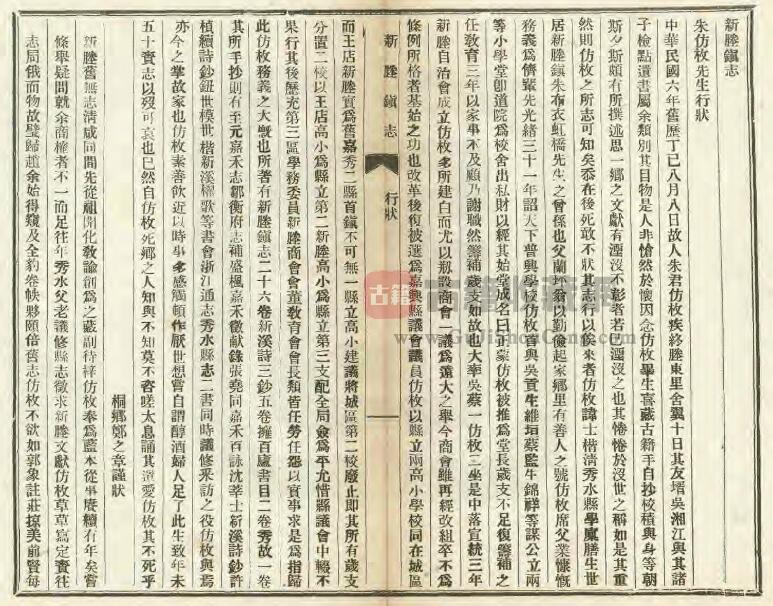 新塍鎮志
朱仿枚先生行狀
中華民國六年舊歷丁巳八月八日故人朱君仿枚疾終塍東里舍翼十日其友壻吳湘江與其諸
子檢點遺書屬余類別其目物是人非愴然於懷因念仿枚畢生喜藏古籍手自抄校積與身等朝
斯夕斯頗有所撰述思一鄉之文獻有湮沒不彰者若己湮沒之也其惓惓於沒世之稱如是其重
然則仿枚之所志可知矣忝在後死敢不狀其志行以俟來者仿枚諱士楷清秀水縣學廩膳生世
居新塍鎮朱布衣虹橋先生之曾孫也父蘭坪翁以勤儉起家鄉里有善人之號仿枚席父業慷慨
務義爲儕輩先光緒三十一年詔天下普興學校仿枚首與吳貢生維垣蔡監生錦祥等謀公立兩
等小學堂卽道院爲校舍出私財以經其始堂成名曰正蒙仿枚被推爲堂長歲支不足復籌補之
任教育三年以家事不及顧乃謝職然籌補歲支如故也大率吳蔡一仿枚三坐是中落宣統三年
新塍自治會成立仿枚多所建白而尤以剏設商會一議爲遠大之舉今商會雖再經改組卒不爲
條例所格者基始之功也改革後復被選爲嘉興縣議會議員仿枚以縣立兩高小學校同在城區
新塍鎮志
行狀
而王店新塍實爲舊嘉秀二縣首鎮不可無一縣立高小建議將城區第二校廢止卽其所有歲支
分置二校以王店高小爲縣立第二新塍高小爲縣立第三支配全局僉爲平允惜縣議會中輟不
果行其後歷充第三區學務委員新塍商會會董教育會會長類皆任勞任怨以實事求是爲指歸
此仿枚務義之大槪也所著有新塍鎮志二十六卷新溪詩三鈔五卷擁百廬書目二卷秀故一卷
其所手抄則有至元嘉禾志鄒衡府志補盛楓嘉禾徵獻錄張堯同嘉禾百詠沈莘士新溪詩鈔許
楨續詩鈔鈕世模世楷新溪櫂歌等書會浙江通志秀水縣志二書同時議修釆訪之役仿枚與焉
亦今之掌故家也仿枚素善飲近以時事多感觸頓作厭世想嘗自謂醇酒婦人足了此生致年未
五十賫志以歿可哀也已然自仿枚死鄉之人知與不知莫不咨嗟太息誦其遺愛仿枚其不死乎
桐鄉鄭之章謹狀
新塍舊無志清咸同間先從祖開化敎諭創爲之蕆副待梓仿枚奉爲藍本從事賡續有年矣嘗
條舉疑問就余商榷者不一而足往年秀水父老議修縣志徵求新塍文獻仿枚草草寫定賫往
志局俄而物故璧歸趙余始得窺及全豹卷帙夥頤倍舊志仿枚不欲如郭象註莊掠美前賢每